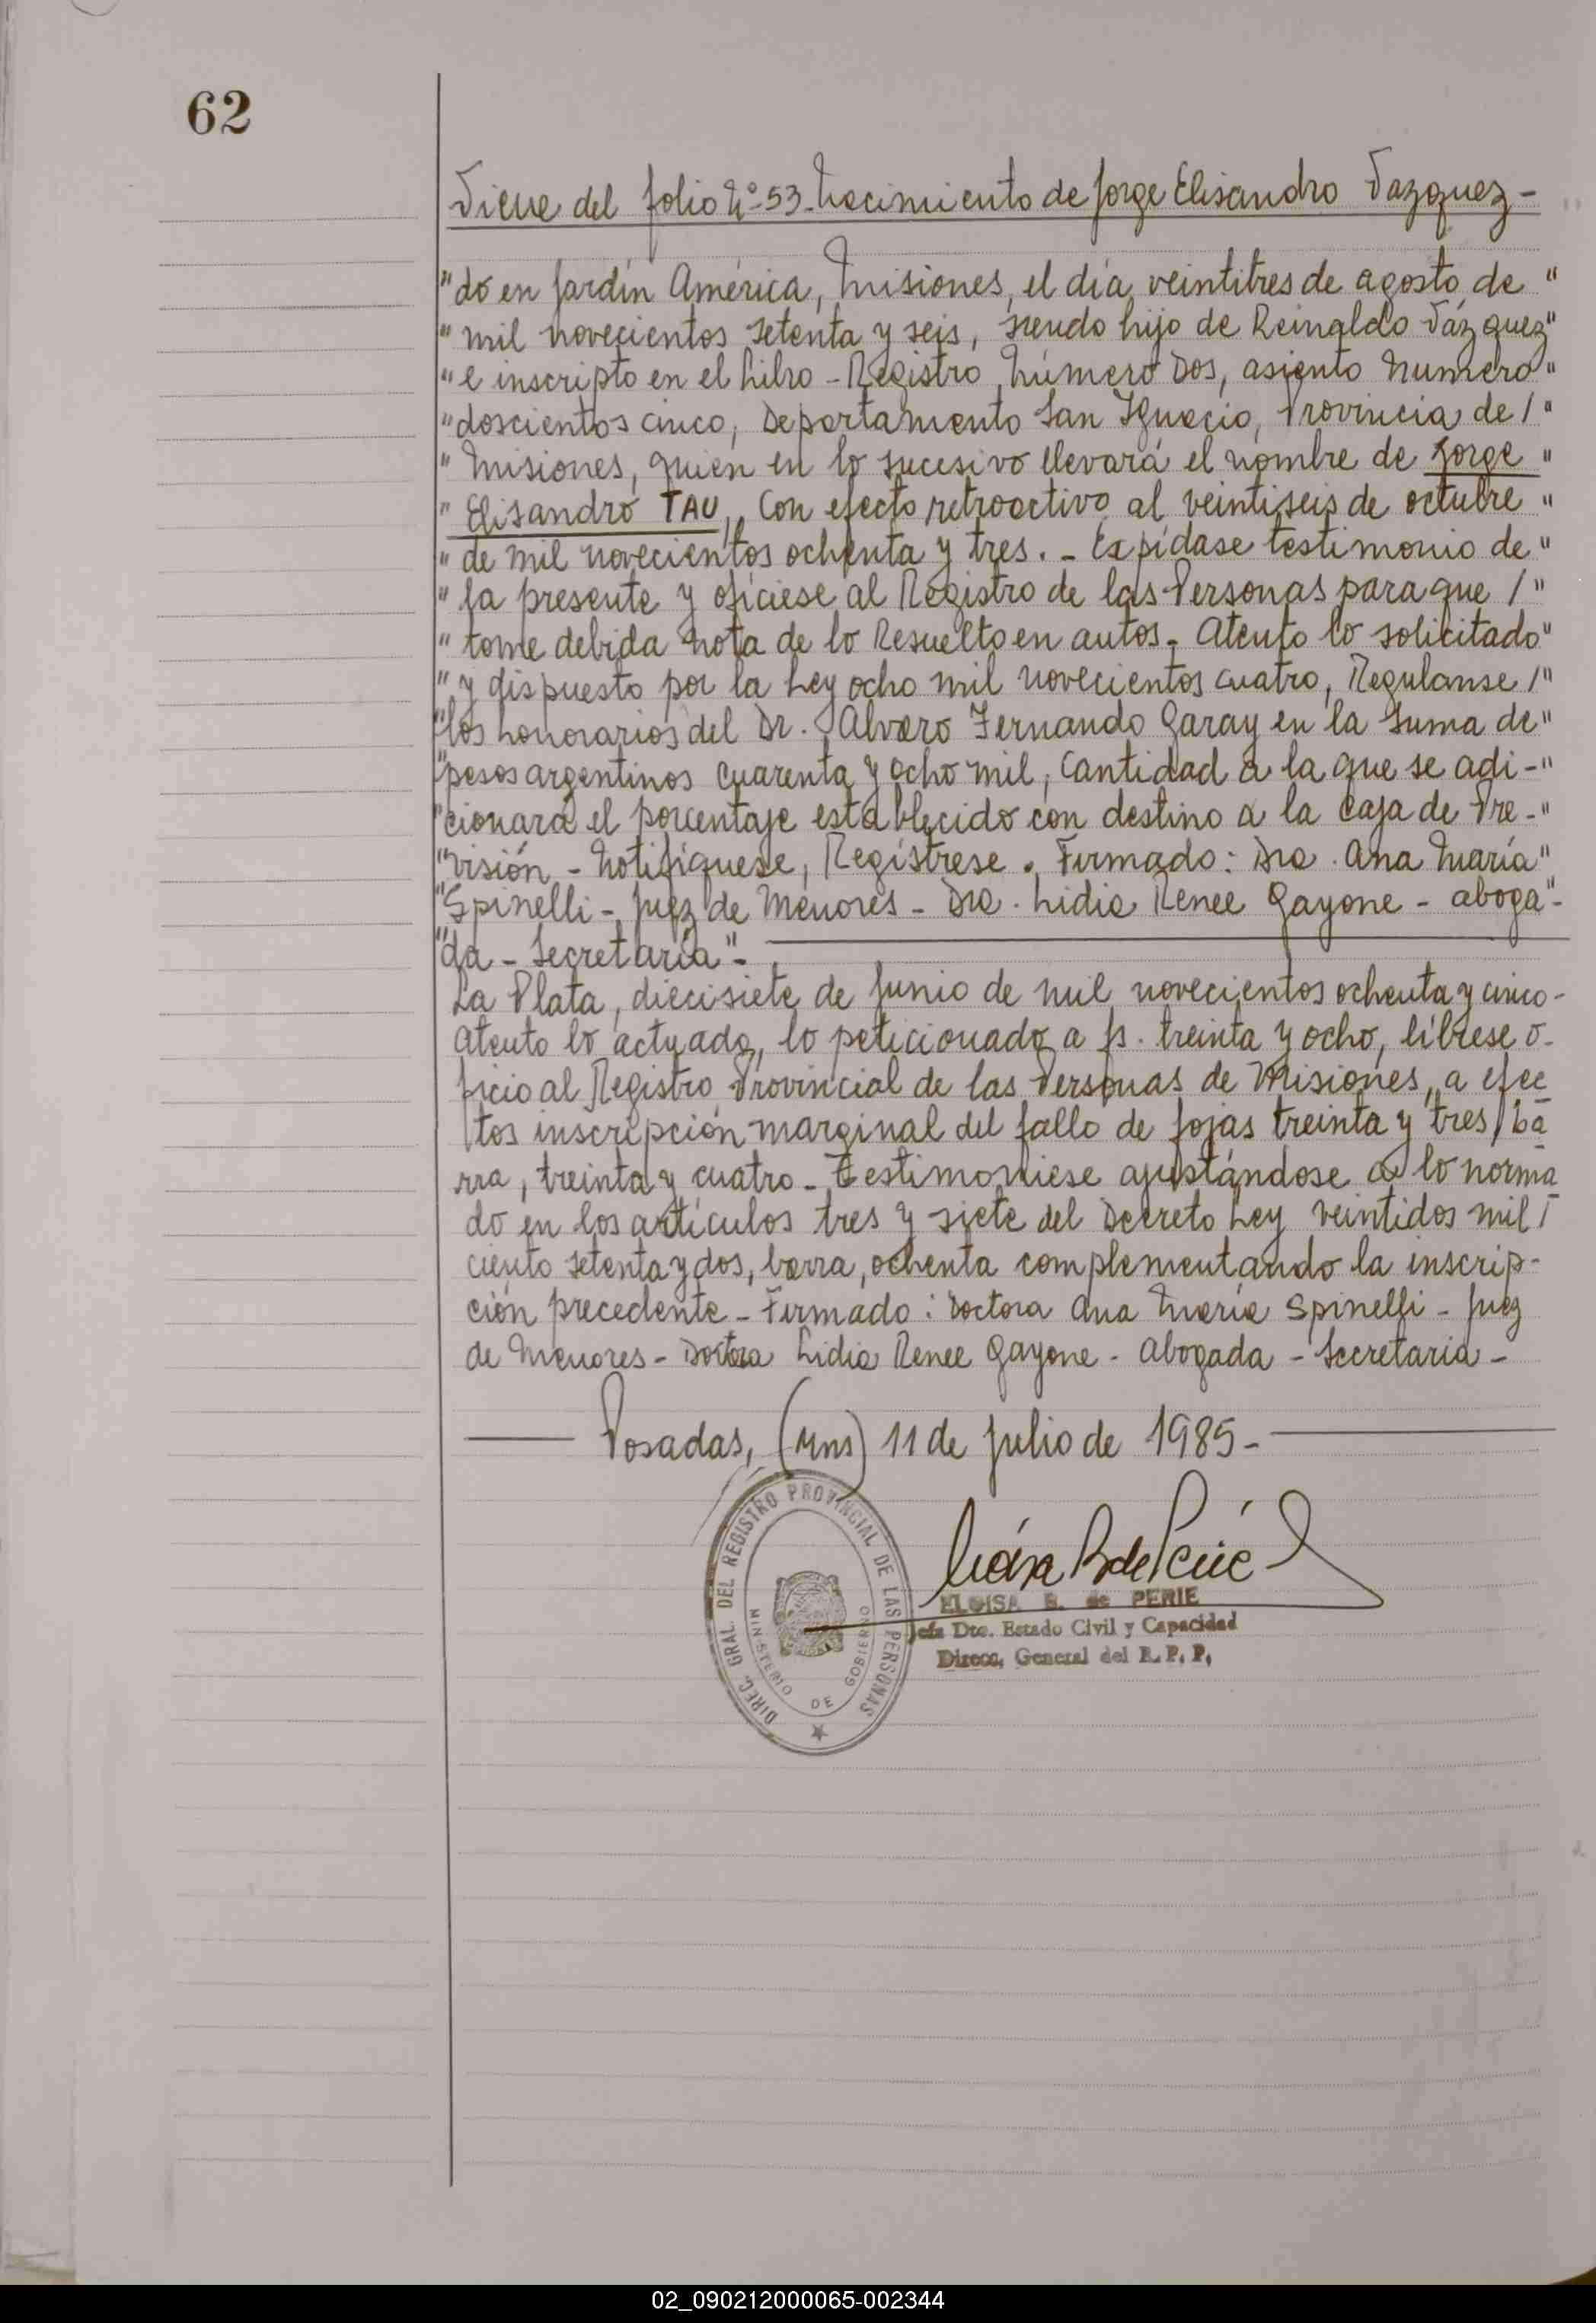 62
Viene del folio Nº 53. Nacimiento de Jorge Elisandro Vazquez -
"do en Jardín América, Misiones, el día veintitres de agosto de "
" mil novecientos setenta y seis, siendo hijo de Reinaldo Vázquez"
" e inscripto en el Libro - Registro Número Dos, asiento Numero "
" doscientos cinco, Departamento San Ignacio, Provincia de / "
" Misiones, quien en lo sucesivo llevará el nombre de Jorge "
" Elisandro TAU, Con efecto retroactivo al veintiseis de octubre "
" de mil novecientos ochenta y tres. - Expídase testimonio de "
" la presente y ofíciese al Registro de las Personas para que / "
" tome debida nota de lo Resuelto en autos - Atento lo solicitado"
" y dispuesto por la Ley ocho mil novecientos cuatro, Regulanse /"
"los honorarios del Dr. Alvaro Fernando Garay en la suma de"
"pesos argentinos cuarenta y ocho mil, cantidad a la que se adi-"
"cionará el porcentaje establecido con destino a la Caja de Pre-"
"visión - Notifíquese, Regístrese. Firmado: Dra. Ana María"
"Spinelli - Juez de Menores - Dra. Lidia Renee Gayone - aboga"-
"da - Secretaría" -
La Plata, diecisiete de Junio de mil novecientos ochenta y cinco -
Atento lo actuado, lo peticionado a fs. treinta y ocho, líbrese o-
ficio al Registro Provincial de las Personas de Misiones, a efec
tos inscripción marginal del fallo de fojas treinta y tres / ba
rra, treinta y cuatro - Testimoniese ajustándose a lo norma
do en los artículos tres y siete del Decreto Ley veintidos mil /
ciento setenta y dos, barra, ochenta complementando la inscrip-
ción precedente - Firmado: Doctora Ana María Spinelli - Juez
de Menores - Doctora Lidia Renee Gayone - Abogada - Secretaria -
Posadas, (Mns) 11 de Julio de 1985 -
DIREC. GRAL. DEL REGISTRO PROVINCIAL DE LAS PERSONAS
MINISTERIO DE GOBIERNO
ELOISA B. de PERIE
Jefa Dto. Estado Civil y Capacidad
Direcc. General del R. P. P.
02_090212000065-002344